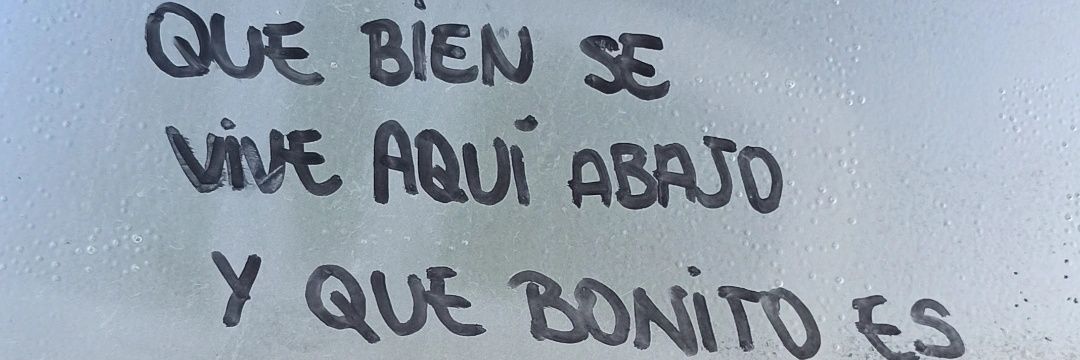 QUE BIEN SE
VIVE AQUI ABAJO
Y QUE BONITO ES